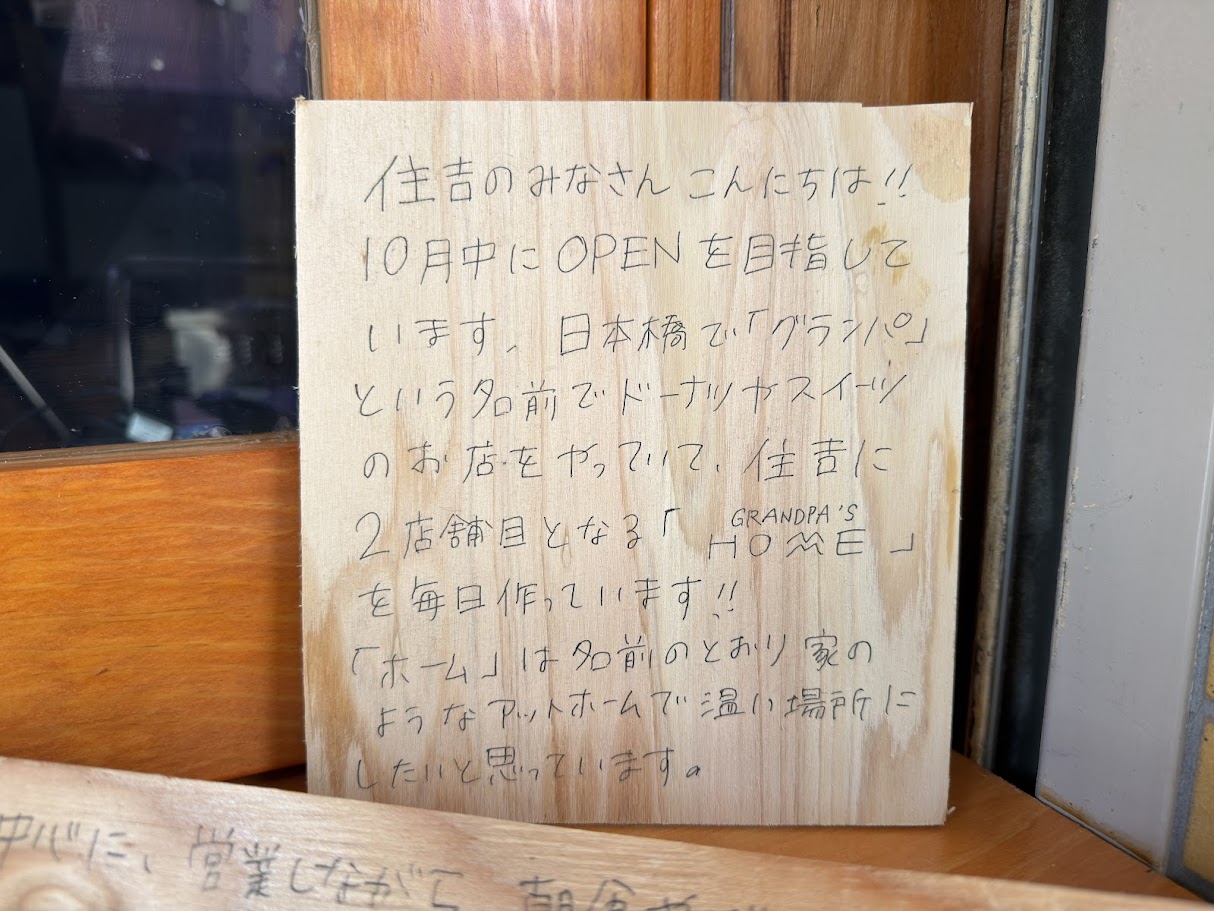 住吉のみなさん こんにちは!!
10月中に OPEN を目指して
います、日本橋で「グランパ」
という名前でドーナツやスイーツ
のお店をやっていて、住吉に
2店舗目となる「GRANDPA'S
HOME」
を毎日作っています!!
「ホーム」は名前のとおり家の
ようなアットホームで温い場所に
したいと思っています。
中心に、営業しながら、朝食や